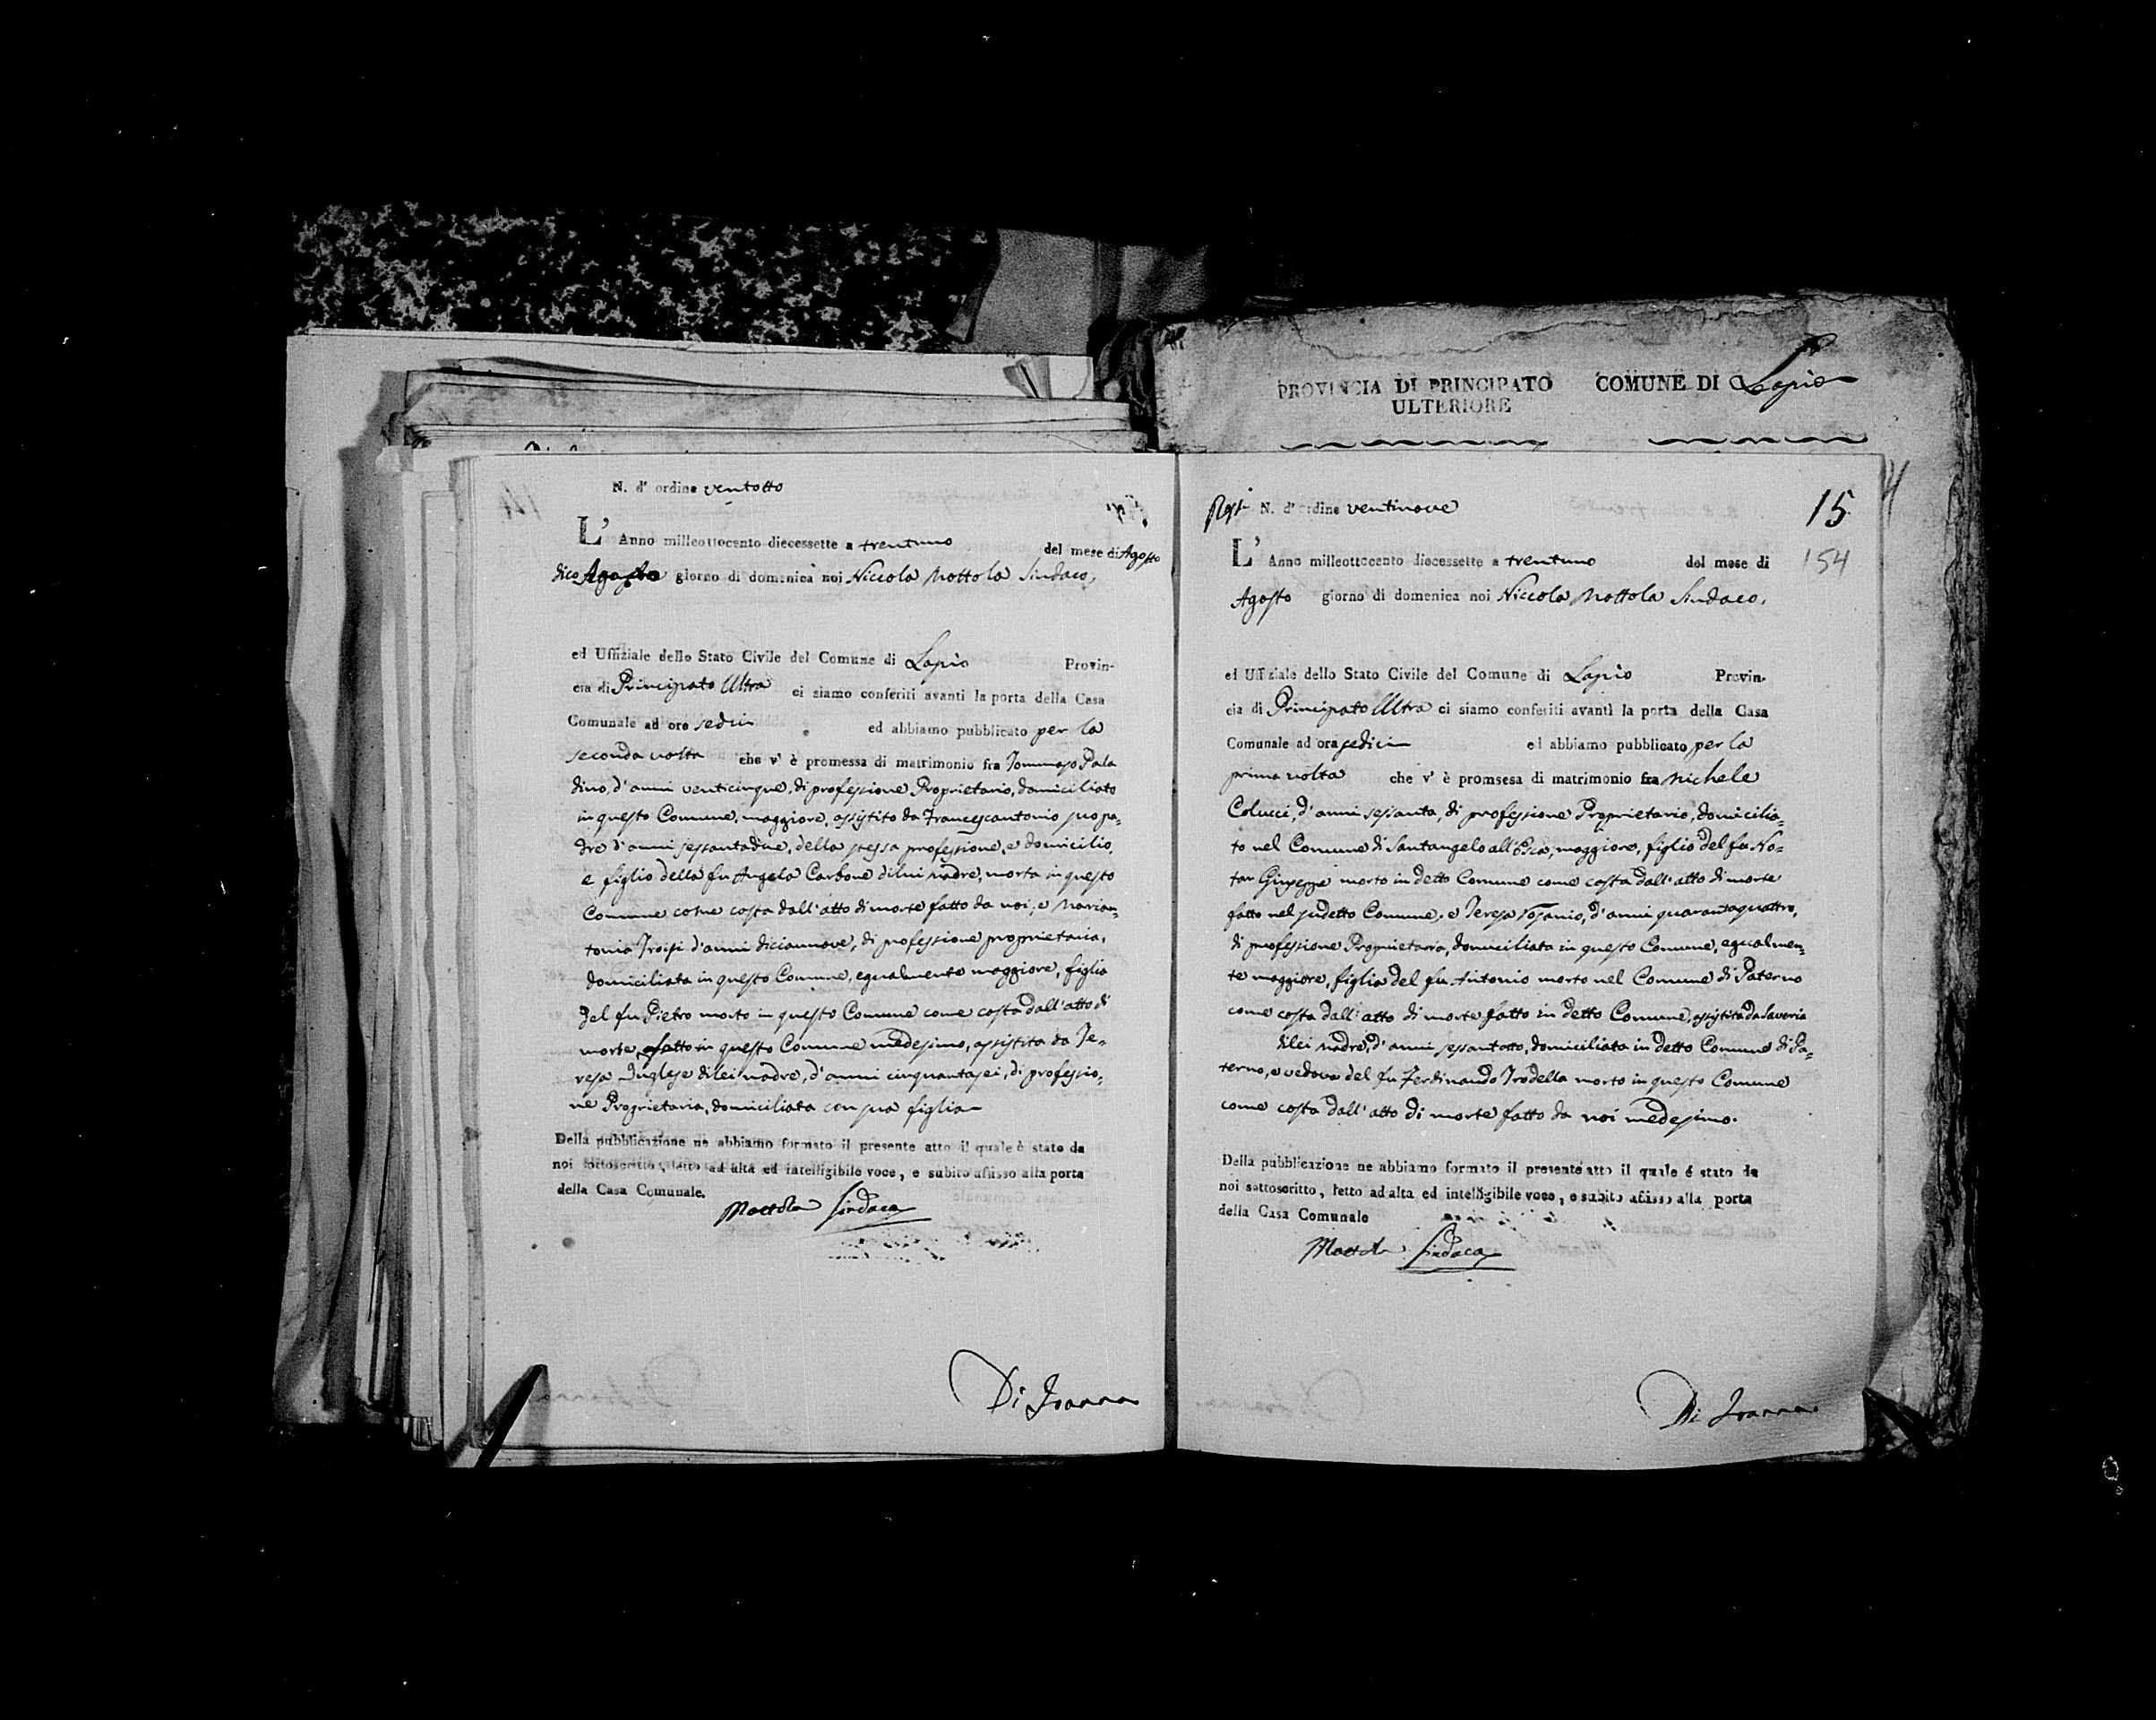 PROVINCIA DI PRINCIPATO ULTERIORE COMUNE DI Lapio
N. d' ordine ventotto
L' Anno milleottocento diecessette a trentuno del mese di Agosto
dico Agosto giorno di domenica noi Niccola Mottola Sindaco,
ed Uffiziale dello Stato Civile del Comune di Lapio Provin-
cia di Principato Ultra ci siamo conferiti avanti la porta della Casa
Comunale ad ore sedici ed abbiamo pubblicato per la
seconda volta che v' è promessa di matrimonio fra Tommaso Pala
dino, d'anni venticinque, di professione Proprietario, domiciliato
in questo Comune, maggiore, assistito da Francescantonio suo pa=
dre d'anni sessantadue, della stessa professione, e domicilio,
e figlio della fu Angela Carbone di lui madre, morta in questo
Comune come costa dall'atto di morte fatto da noi, e Marian=
tonia Troisi d'anni diciannove, di professione proprietaria,
domiciliata in questo Comune, egualmente maggiore, figlia
del fu Pietro morto in questo Comune come costa dall'atto di
morte fatto in questo Comune medesimo, assistita da Te=
resa Inglese di lei madre, d'anni cinquantasei, di professio=
ne Proprietaria, domiciliata con sua figlia
Della pubblicazione ne abbiamo formato il presente atto il quale è stato da
noi sottoscritto, letto ad alta ed intelligibile voce, e subito afiisso alla porta
della Casa Comunale.
Mottola Sindaco
Di Ioanna
N. d' ordine ventinove
15
154
L' Anno milleottocento diecessette a trentuno del mese di
Agosto giorno di domenica noi Niccola Mottola Sindaco,
ed Uffiziale dello Stato Civile del Comune di Lapio Provin-
cia di Principato Ultra ci siamo conferiti avanti la porta della Casa
Comunale ad ora sedici ed abbiamo pubblicato per la
prima volta che v' è promsesa di matrimonio fra Michele
Colucci, d'anni sessanta, di professione Proprietario, domicilia=
to nel Comune di Santangelo all'Esca, maggiore, figlio del fu No=
tar Giuseppe morto in detto Comune come costa dall'atto di morte
fatto nel sudetto Comune, e Teresa d'anni quarantaquattro,
di professione Proprietaria, domiciliata in questo Comune, egualmen=
te maggiore, figlia del fu Antonio morto nel Comune di Paterno
come costa dall'atto di morte fatto in detto Comune, assistita da Saveria
di lei madre, d'anni sessantotto, domiciliata in detto Comune di Pa=
terno, e vedova del fu Ferdinando Trodella morto in questo Comune
come costa dall'atto di morte fatto da noi medesimo.
Della pubblicazione ne abbiamo formato il presente atto il quale é stato da
noi sottoscritto, letto ad alta ed intelligibile voce, e subito afiisso alla porta
della Casa Comunale
Mottola Sindaco
Di Ioanna